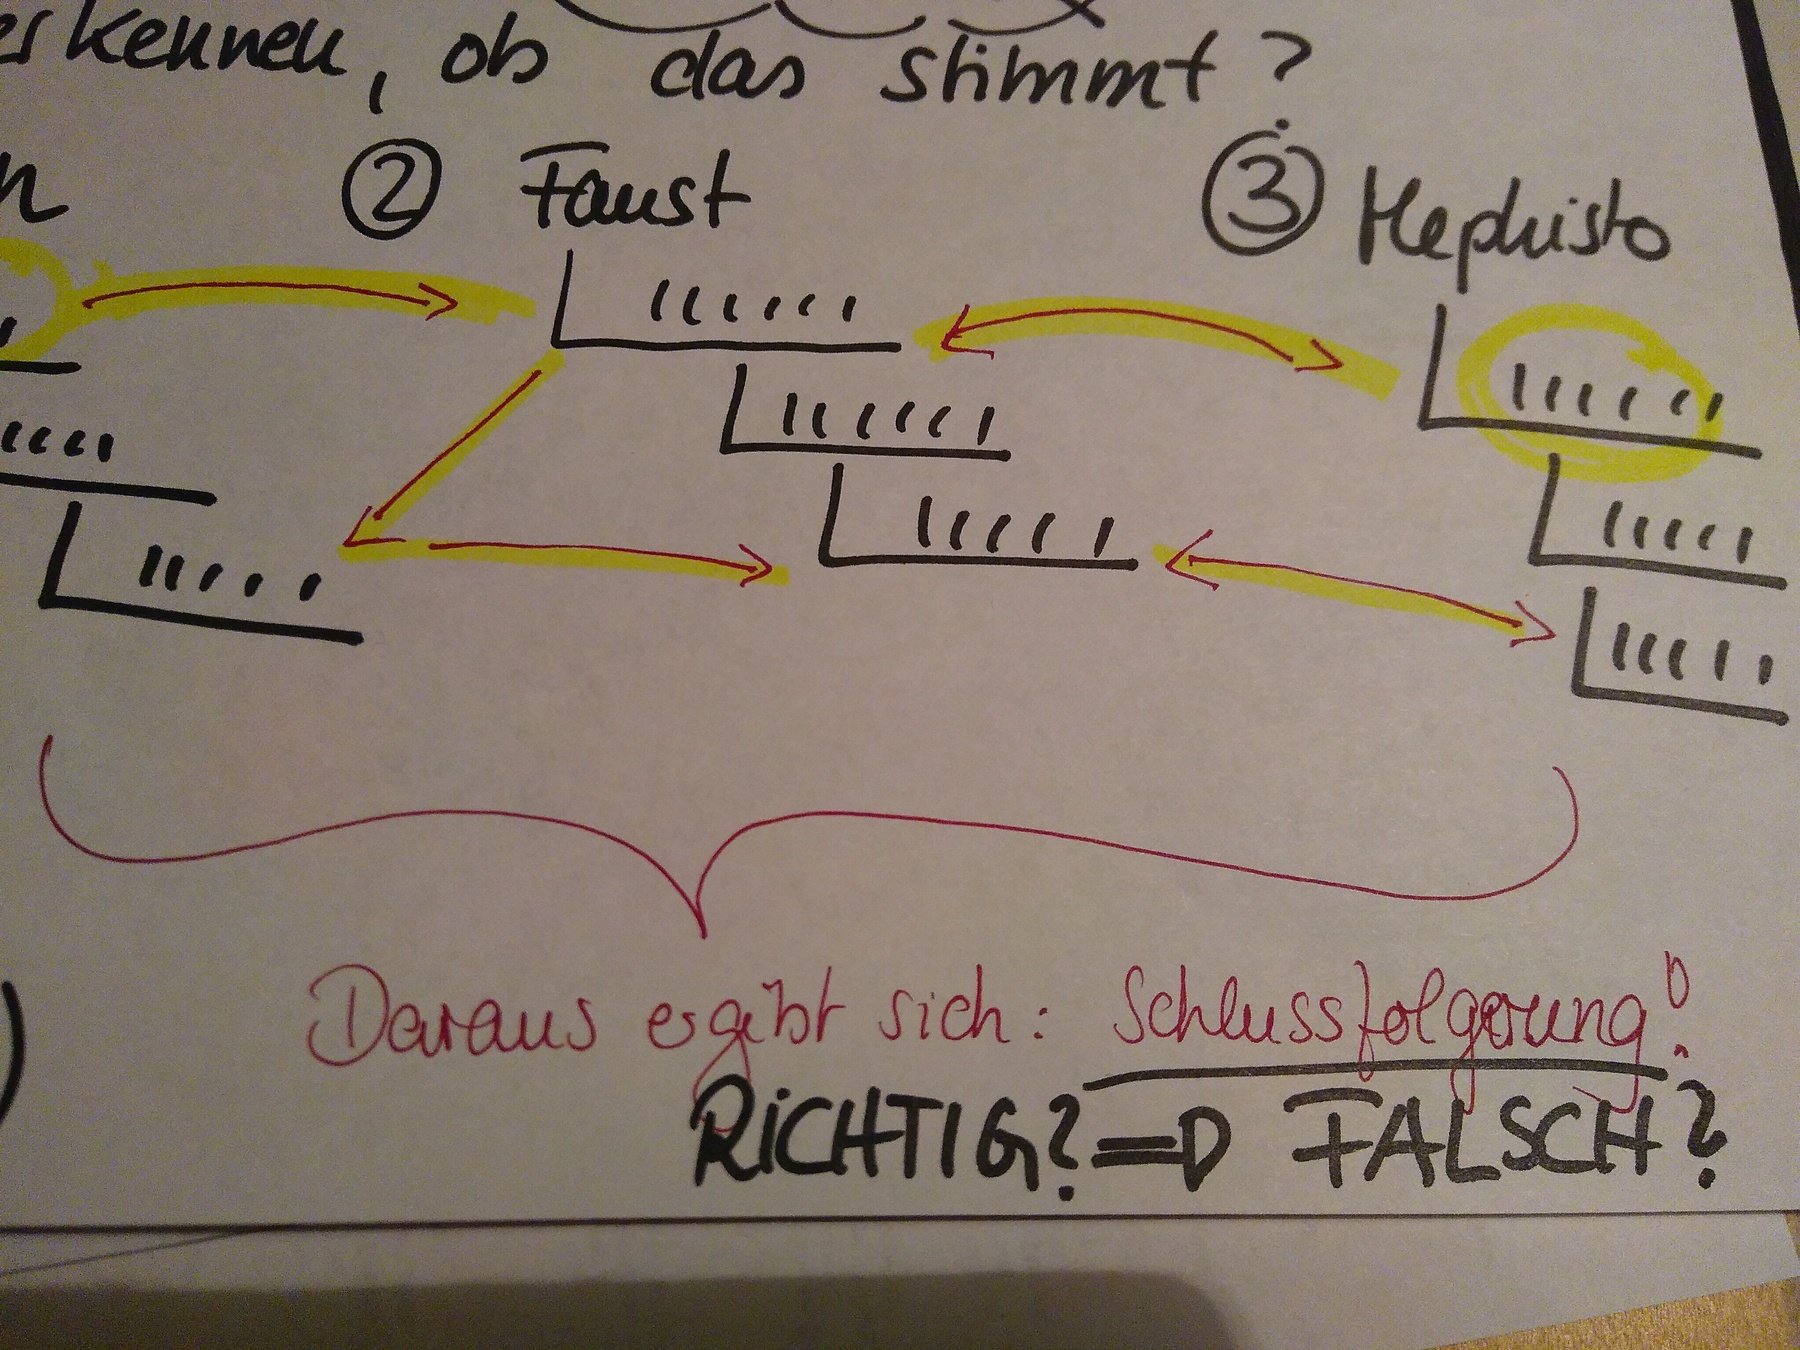 erkennen, ob das stimmt?
n ② Faust ③ Mephisto
Daraus ergibt sich: Schlussfolgerung!
RiCHTIG? => FALSCH?